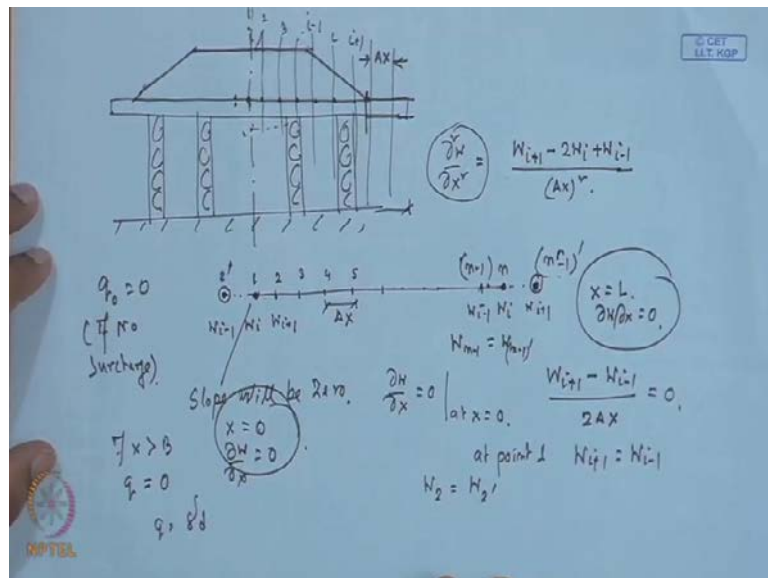 © CET
I.I.T. KGP
1 2 3 i-1 i i+1
ΔX
∂²W/∂X² = (Wi+1 - 2Wi + Wi-1)/(ΔX)²
q₀ = 0
(If no
Surcharge)
2' 1 2 3 4 5 (n-1) n (n-1)'
Wi-1 Wi Wi+1 ΔX Wi-1 Wi Wi+1
x = L
∂W/∂x = 0
Slope will be Zero.
∂W/∂x = 0 | at x = 0.
(Wi+1 - Wi-1)/2ΔX = 0
x = 0
∂W/∂x = 0
at point 1 Wi+1 = Wi-1
W2 = W2'
If x > B
q = 0
q, γd
NPTEL